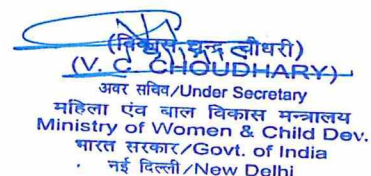 (विकास चन्द्र चौधरी)
(V. C. CHOUDHARY)
अवर सचिव/Under Secretary
महिला एंव बाल विकास मन्त्रालय
Ministry of Women & Child Dev.
भारत सरकार/Govt. of India
नई दिल्ली/New Delhi